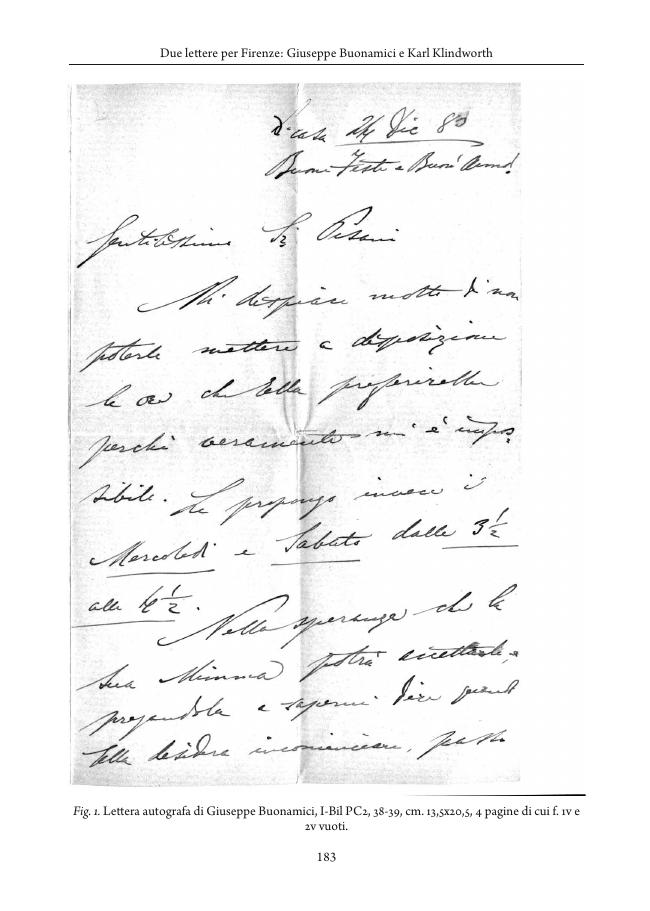 Due lettere per Firenze: Giuseppe Buonamici e Karl Klindworth
Di casa 24 Dic 83
Buone Feste e Buon' Anno!
Gentilissimo Sig Pisani
Mi dispiace molto di non
poterle mettere a disposizione
le ore che Ella preferirebbe
perchè veramente m'è impos
sibile. Le propongo invece il
Mercoledì e Sabato dalle 3½
alle 4½.
Nella speranza che la
Sua Mimma potrà accettarle, e
pregandola a sapermi dire quando
Ella desidera incominciare,
Fig. 1. Lettera autografa di Giuseppe Buonamici, I-Bil PC2, 38-39, cm. 13,5x20,5, 4 pagine di cui f. 1v e
2v vuoti.
183